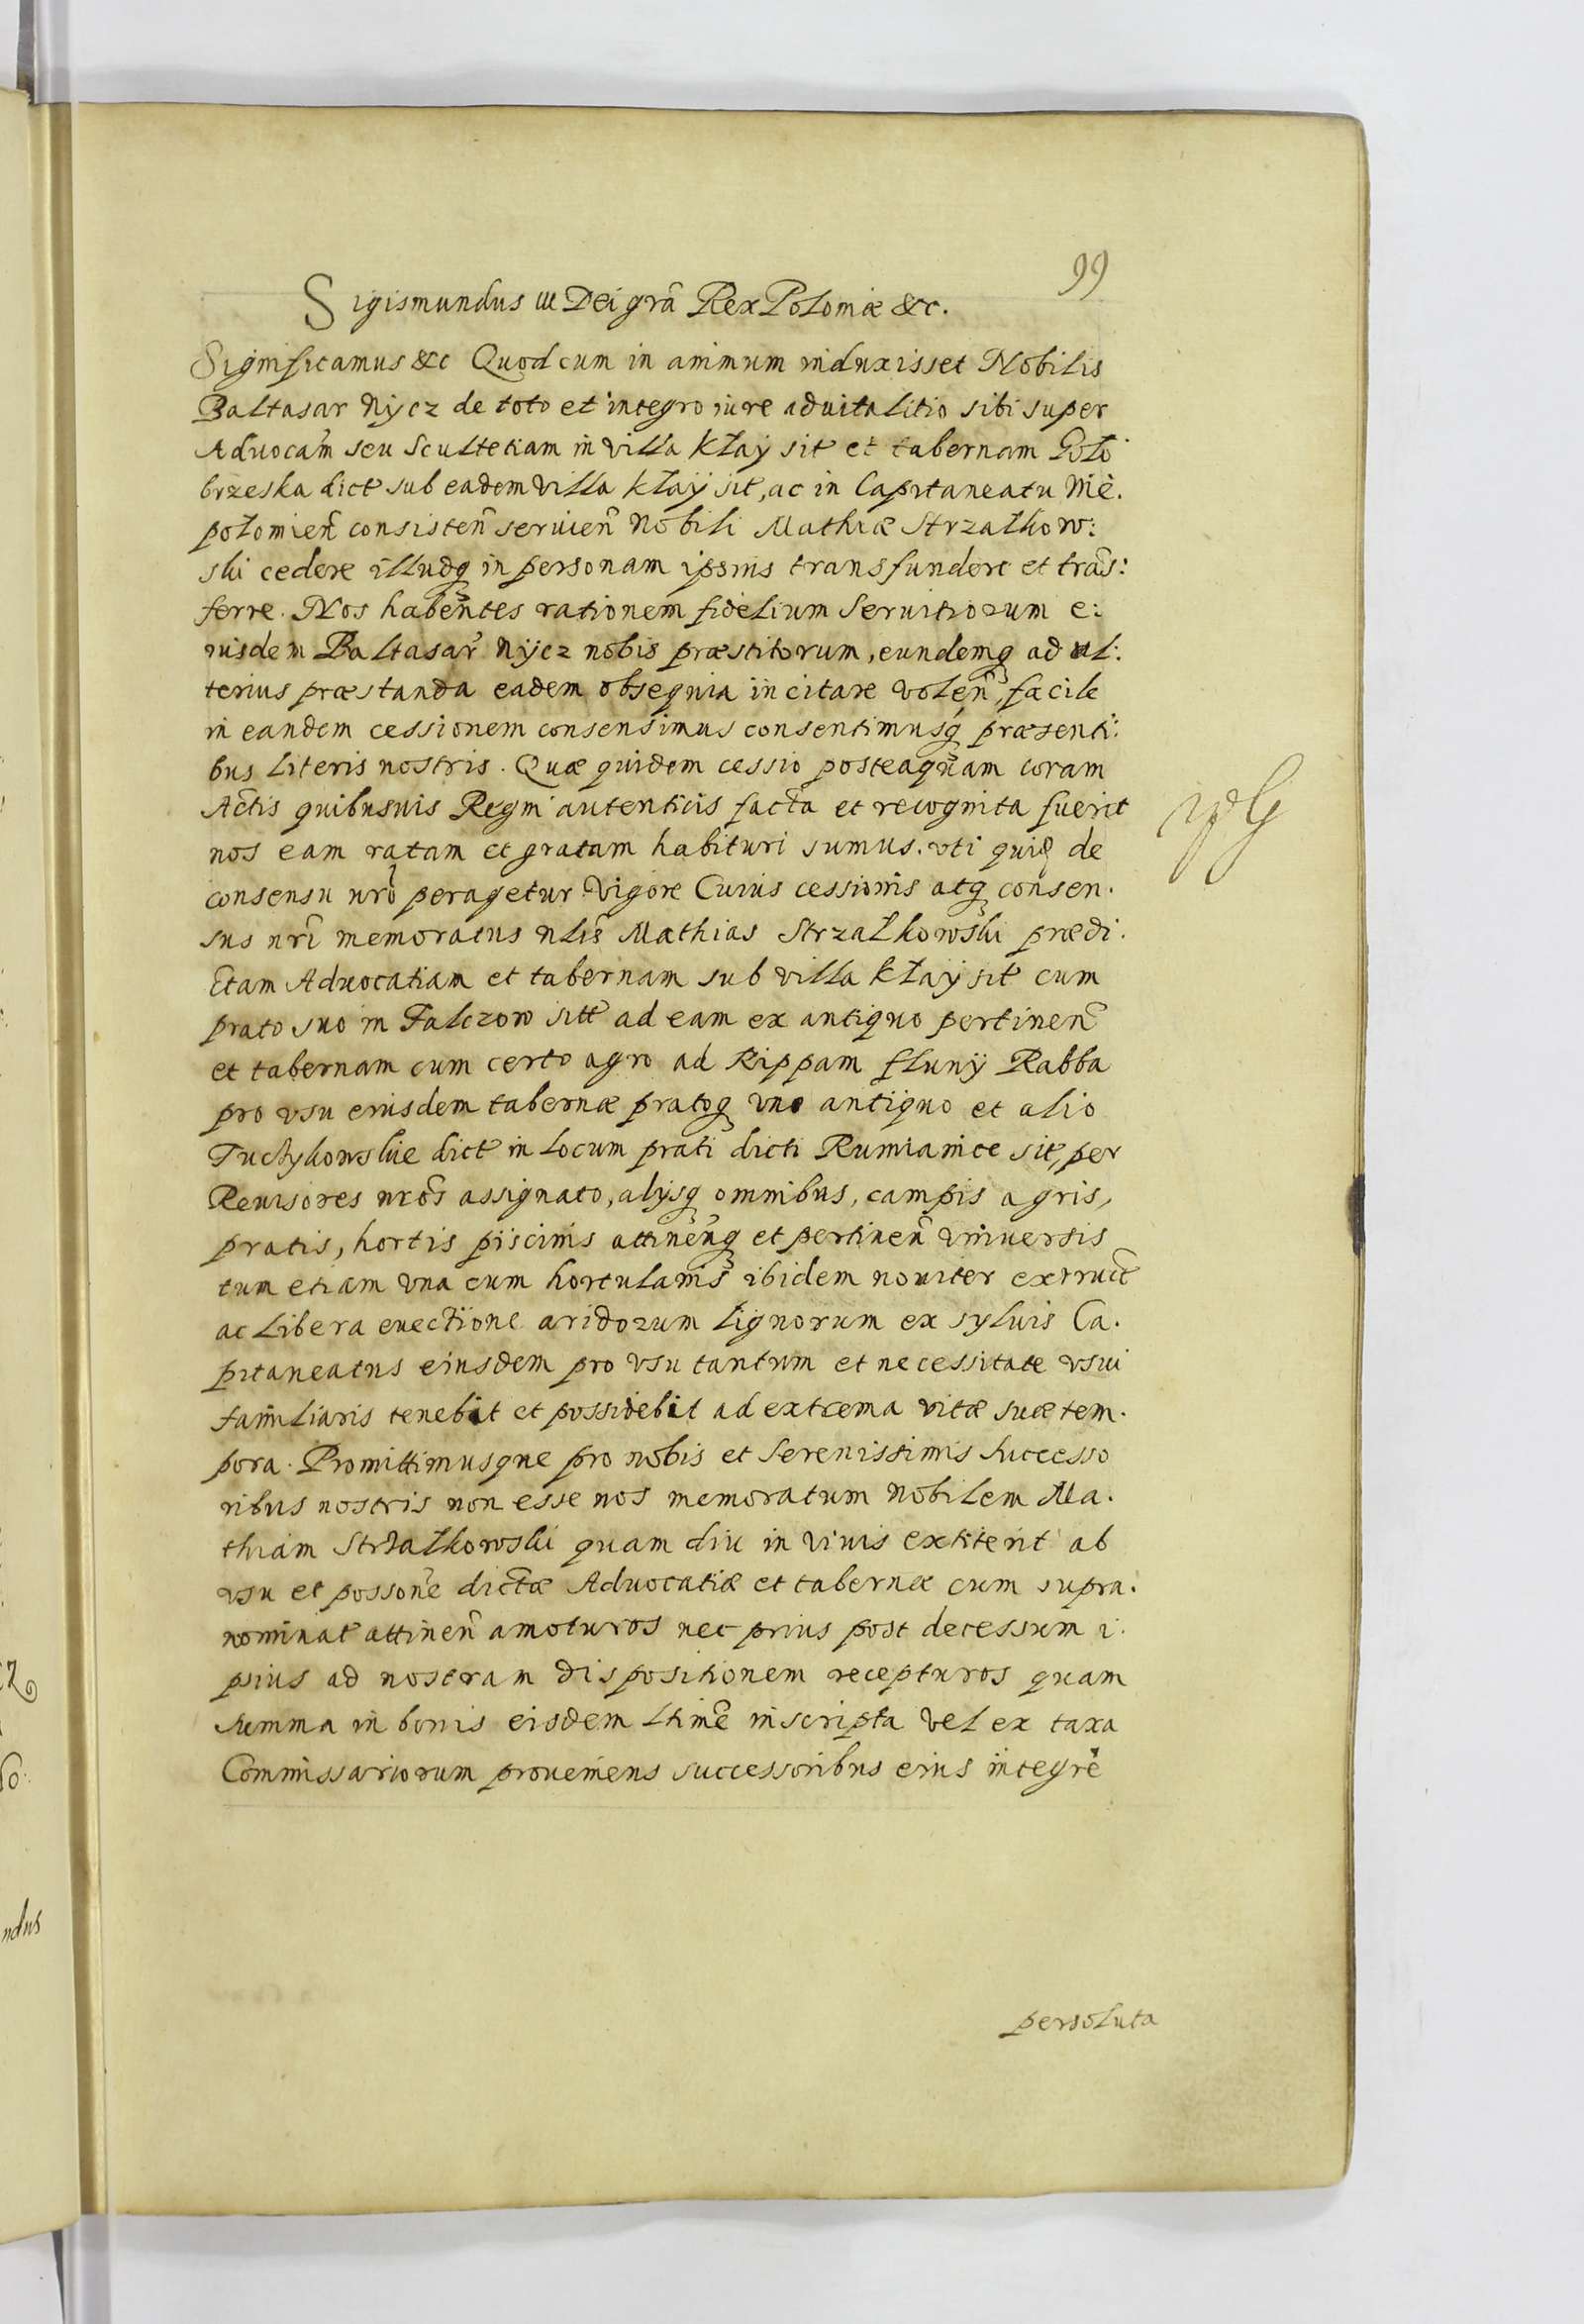 99
Sigismundus III Dei grã Rex Poloniæ &c.
Significamus &c Quod cum in animum induxisset Nobilis
Baltasar Nÿcz de toto et integro iure aduitalitio sibi super
Aduocãm seu Scultetiam in villa Kłaÿ sit et tabernam Goło
brzeska dict sub eadem villa kłaÿ sit, ac in Capitaneatu Nie.
połomien̄ consisten̄ seruien̄ Nobili Mathiæ Strzałkow:
ski cedere illudq in personam ipsius transfundere et trãs:
ferre. Nos habentes rationem fidelium Seruitiorum e:
iusdem Baltasar Nÿcz nobis præstitorum, eundemq ad ul:
terius præstanda eadem obsequia incitare volen̄, facile
in eandem cessionem consensimus consentimusq præsenti:
bus literis nostris. Quæ quidem cessio posteaquam coram
Actis quibusuis Regni autenticis facta et recognita fuerit
nos eam ratam et gratam habituri sumus. vti quæ de
consensu nrõ peragetur Vigore Cuius cessionis atq consen.
sus nrĩ memoratus nlis Mathias Strzałkowski prædi.
ctam Aduocatiam et tabernam sub villa kłaÿ sit cum
prato suo in Falczow sitt ad eam ex antiquo pertinen̄
et tabernam cum certo agro ad Rippam fluuÿ Rabba
pro vsu eiusdem tabernæ pratoq vno antiquo et alio
dict in locum prati dicti Rumianice sit, per
Reuisores nrõs assignato, alÿsq omnibus, campis agris,
pratis, hortis piscinis attinen̄q et pertinen̄ vniuersis
tum etiam vna cum hortulanis ibidem nouiter extruct
ac libera euectione aridorum lignorum ex syluis Ca.
pitaneatus eiusdem pro vsu tantum et necessitate vsui
familiaris tenebit et possidebit ad extrema vitæ suæ tem.
pora. Promittimusque pro nobis et Serenissimis Successo
ribus nostris non esse nos memoratum nobilem Ma.
thiam Strzałkowski quam diu in viuis extiterit ab
vsu et possonẽ dictæ Aduocatiæ et tabernæ cum supra.
nominat attinen̄ amoturos nec prius post decessum i.
psius ad nostram dispositionem recepturos quam
summa in bonis eisdem ltimẽ inscripta vel ex taxa
Commissariorum proueniens successoribus eius integrè
persoluta